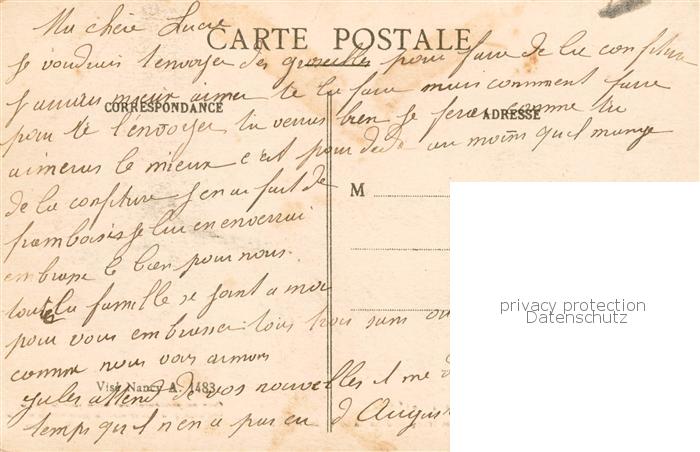 Ma chère Lucie
CARTE POSTALE
Je voudrais t'envoyer des groseilles pour faire de la confiture
j'aurais mieux aimer te la faire mais comment faire
CORRESPONDANCE
ADRESSE
pour te l'envoyer tu verras bien je ferai comme tu
aimeras le mieux c'est pour dédé au moins qu'il mange
de la confiture j'en ai fait de
M
framboises je lui en enverrai
embrasse le bien pour nous
toute la famille se joint a moi
pour vous embrasser tous trois sans
comme nous vous aimons
Visé Nancy A. 1483
Jules attend de vos nouvelles il me
temps qu'il n'en a pas eu d'August
privacy protection
Datenschutz